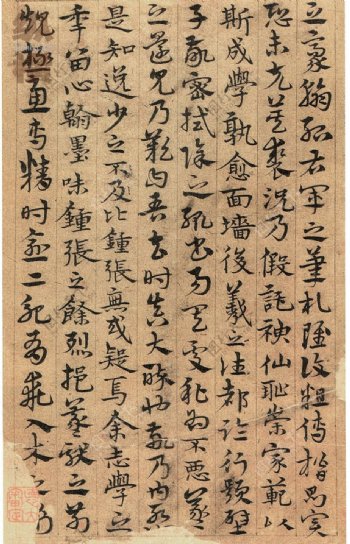 之豪翰紹右軍之筆札雖復粗傳楷則實
恐未克箕裘況乃假託神仙恥崇家範以
斯成學孰愈面墻後羲之往都臨行題壁
子敬密拭除之輒書易其處私為不惡羲
之還見乃歎曰吾去時真大醉也敬乃內慚
是知逸少之不及比鍾張無或疑焉余志學之
年留心翰墨味鍾張之餘烈挹羲獻之前
規極慮專精時逾二紀有乖入木之術